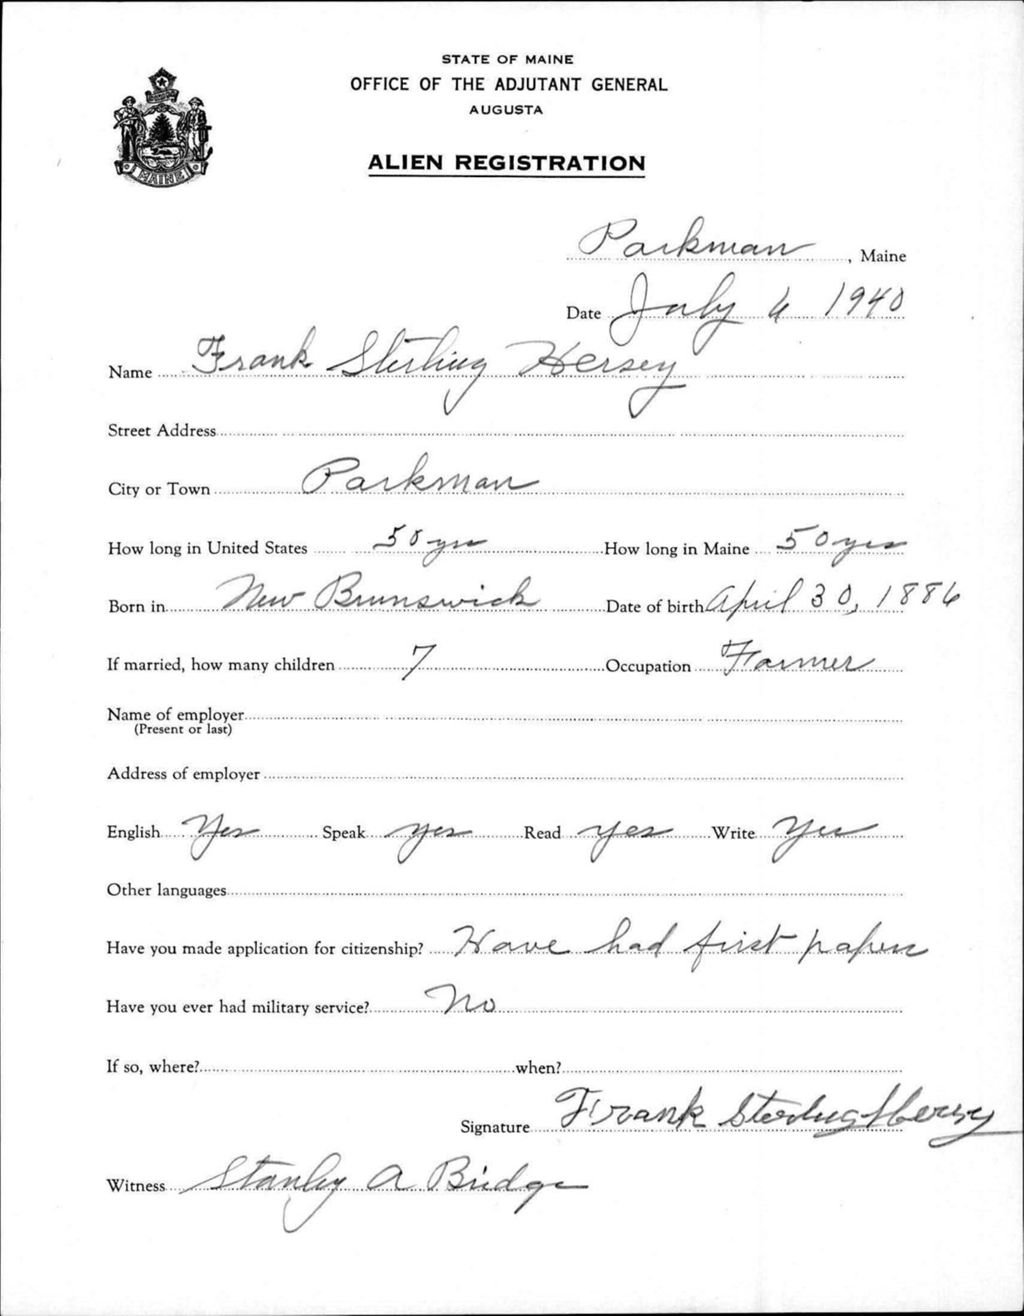 STATE OF MAINE
OFFICE OF THE ADJUTANT GENERAL
AUGUSTA
MAINE
ALIEN REGISTRATION
Parkman, Maine
Date July 6 1940
Name Frank Sterling Hersey
Street Address
City or Town Parkman
How long in United States 50 yrs How long in Maine 50 yrs
Born in New Brunswick Date of birth April 30, 1886
If married, how many children 7 Occupation Farmer
Name of employer
(Present or last)
Address of employer
English Yes Speak yes Read yes Write Yes
Other languages
Have you made application for citizenship? Have had first papers
Have you ever had military service? No
If so, where? when?
Signature Frank Sterling Hersey
Witness Stanley A Bridge